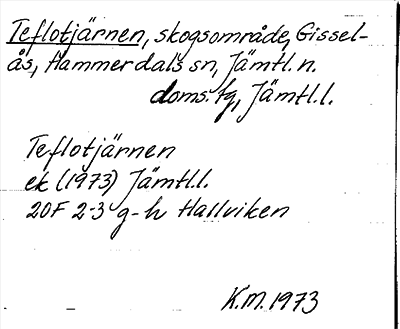 Teflotjärnen, skogsområde, Gissel-
ås, Hammerdals sn, Jämtl. n.
doms. tg, Jämtl. l.
Teflotjärnen
ek (1973) Jämtl. l.
20F 2-3 g-h Hallviken
K.M. 1973